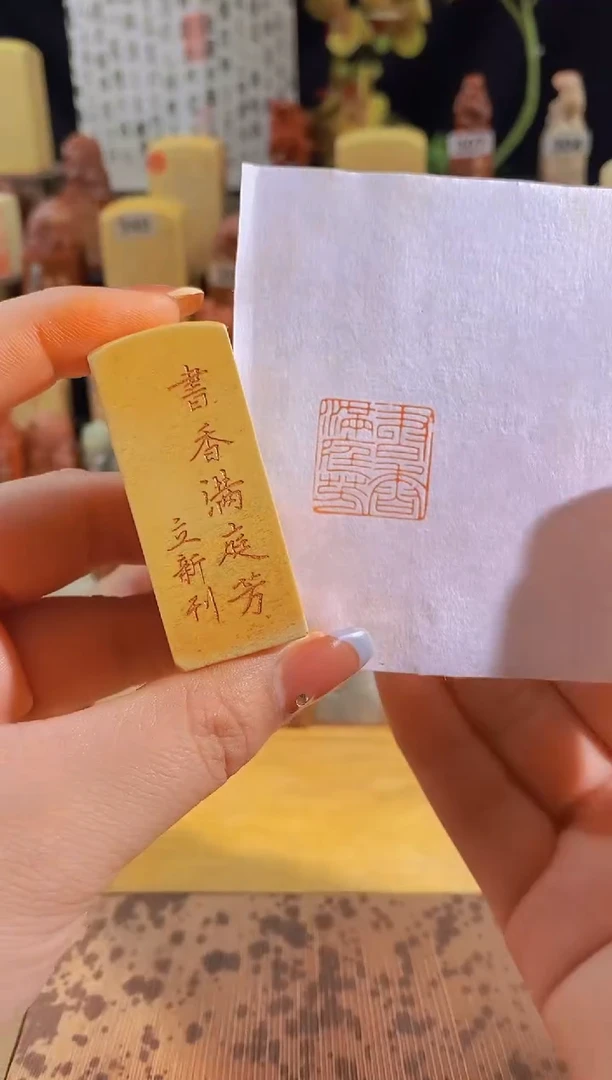 書香滿庭芳
立新刊
書香滿庭芳